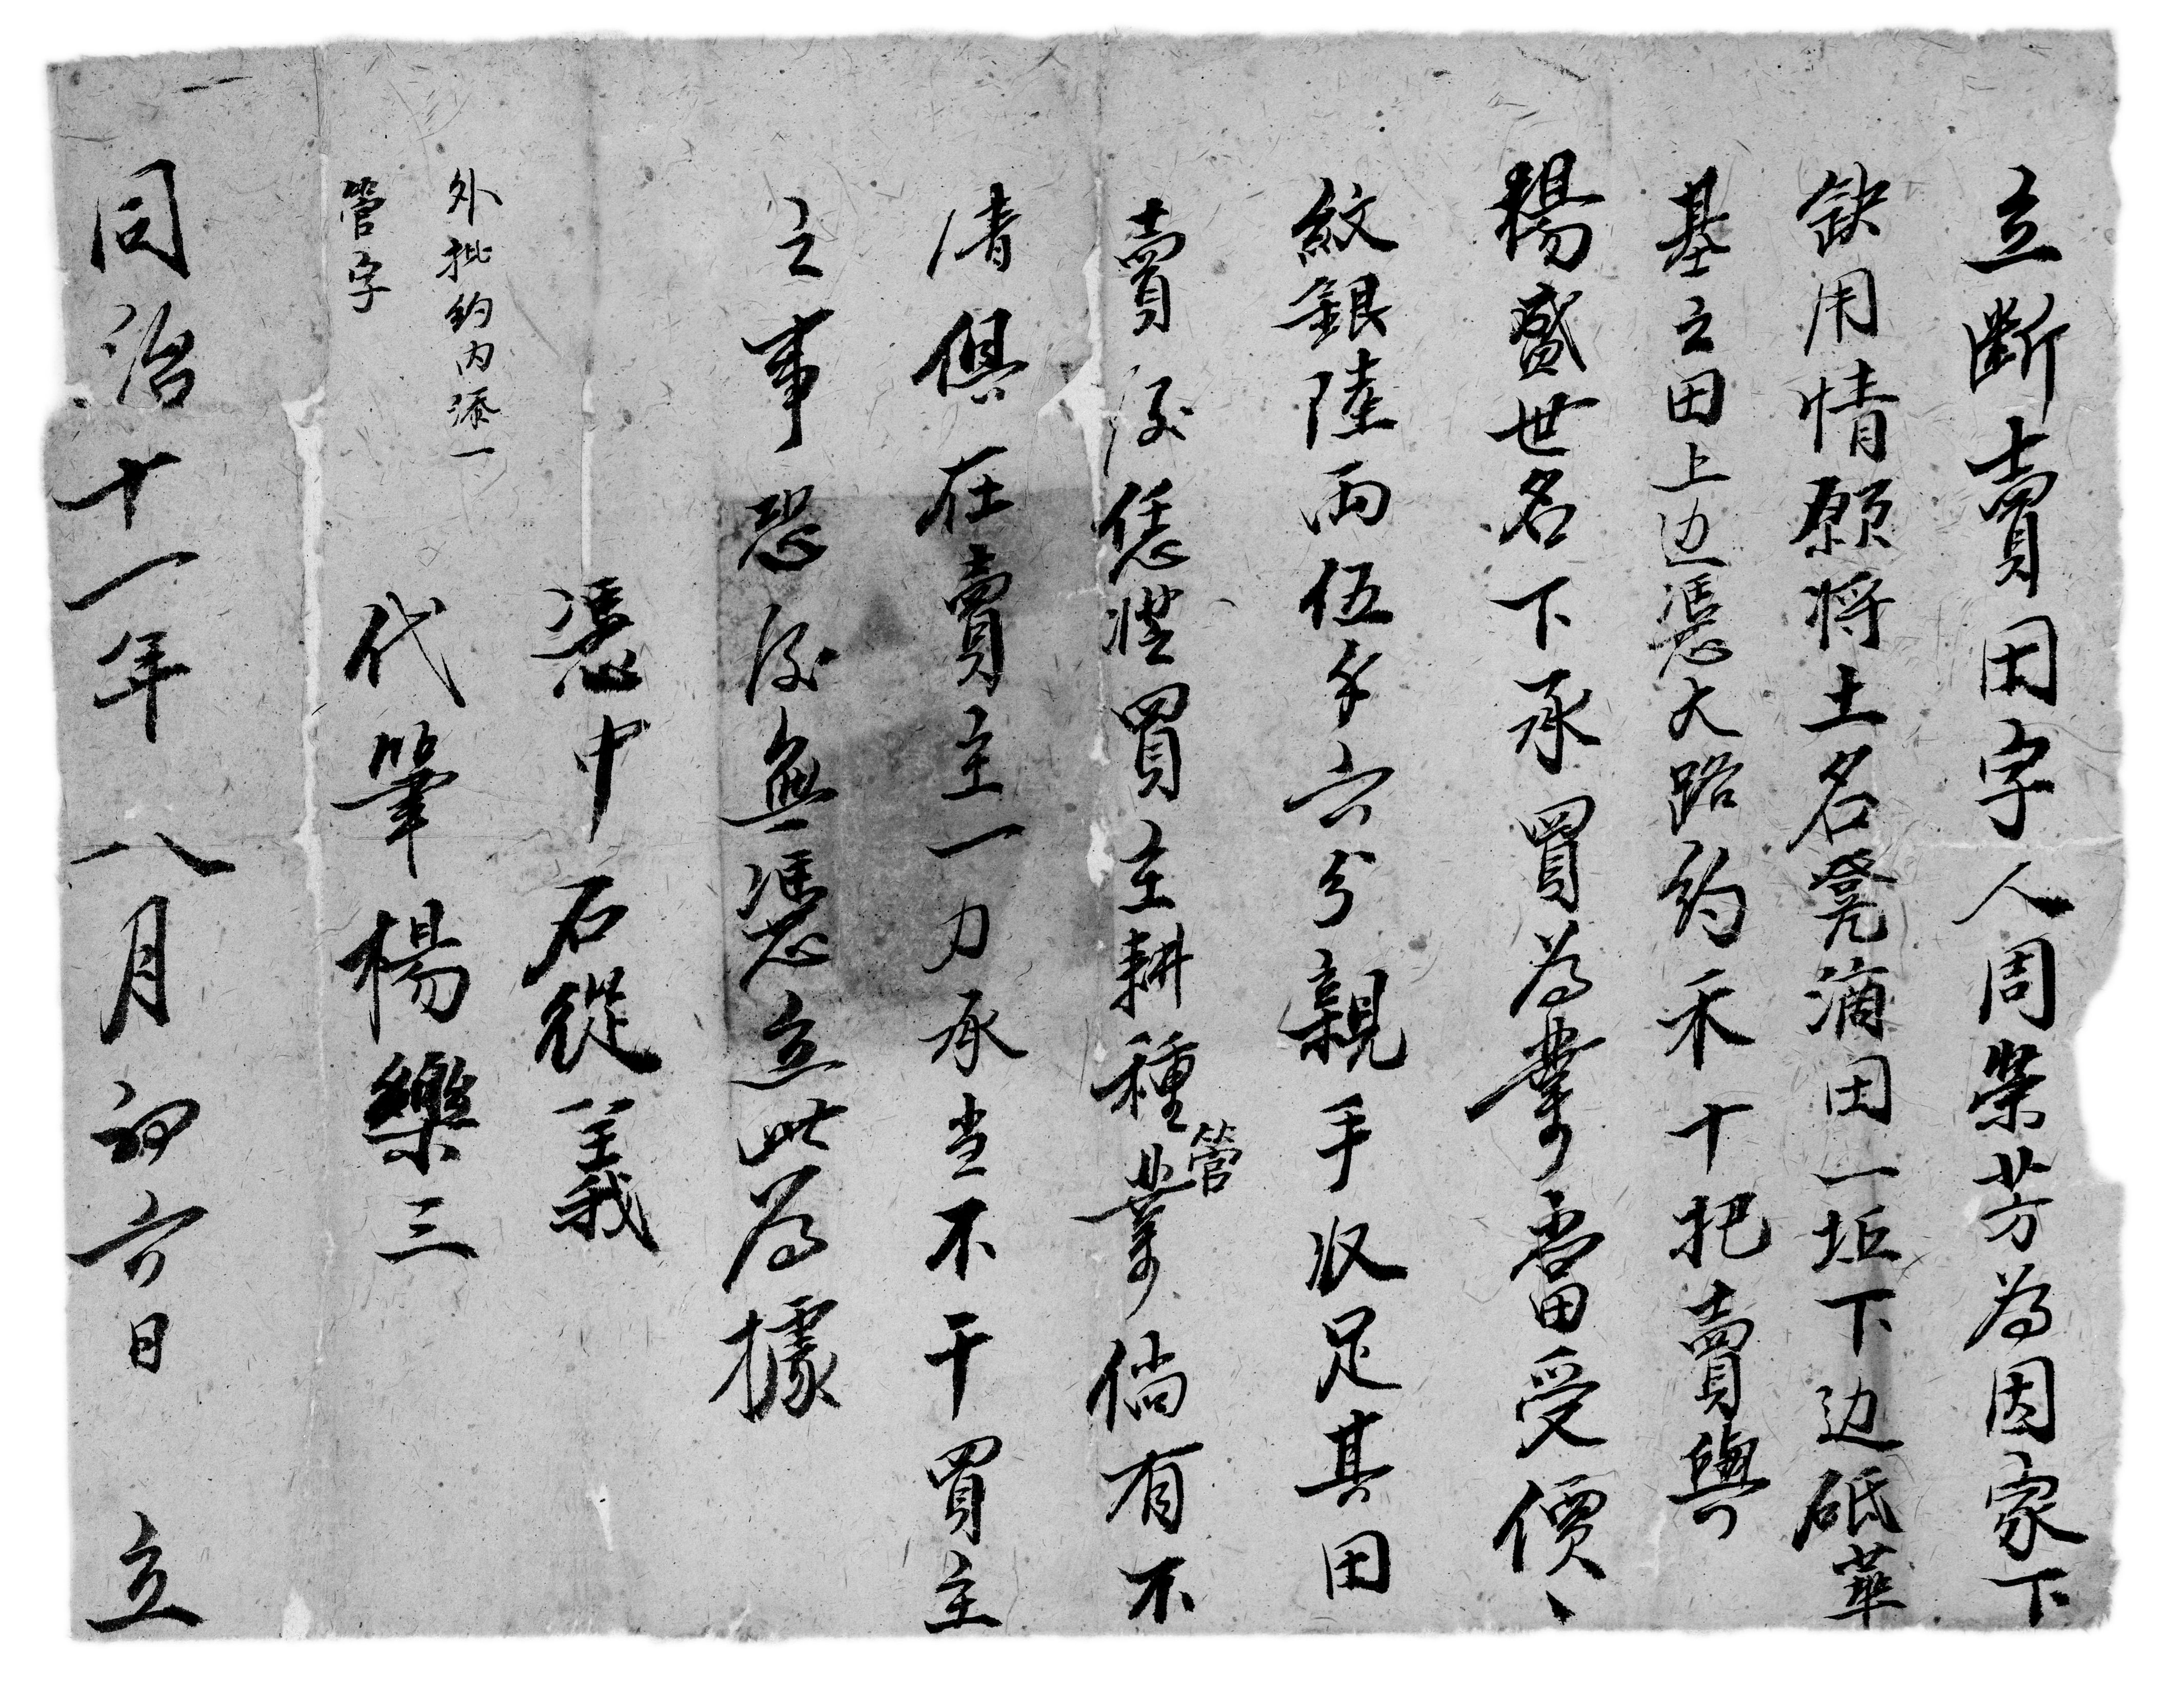 立斷賣田字人周榮芳為因家下
缺用情願将土名凳滴田一坵下边砥華
基之田上边憑大路約禾十把賣與
楊盛世名下承買為業當受價丶
紋銀陸両伍千六分親手収足其田
賣後恁憑買主耕種管業倘有不
清俱在賣主一力承当不干買主
之事恐後無憑立此為據
憑中石從義
外批約内添一
管字
代筆楊樂三
同治十一年八月初六日 立